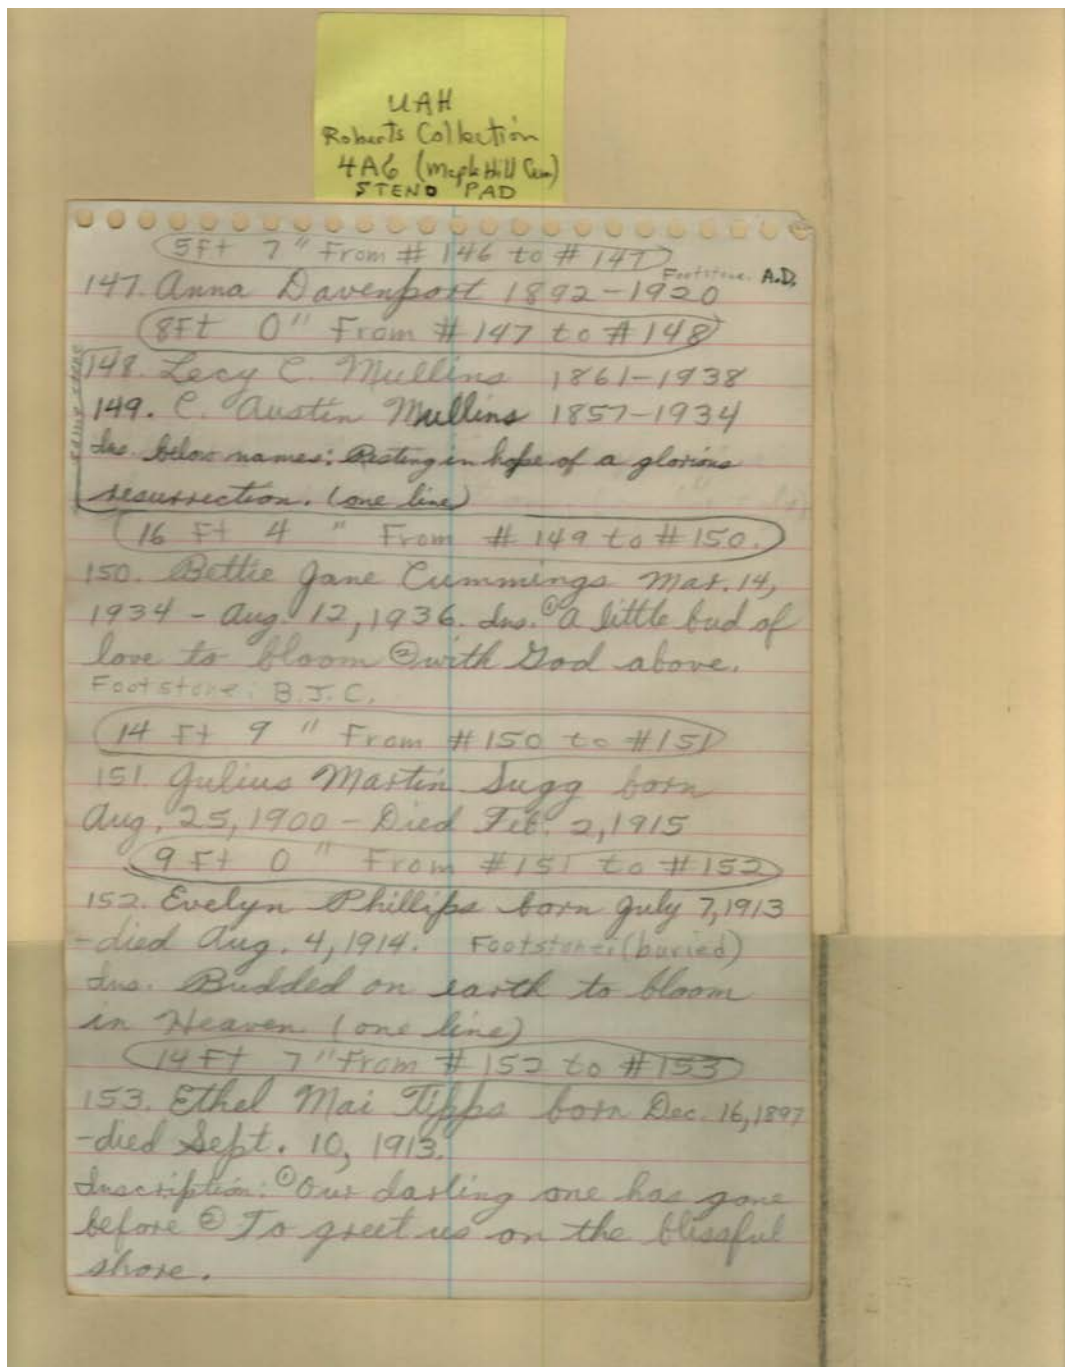 UAH
Roberts Collection
4A6 (Maple Hill Cem)
STENO PAD
5Ft 7" From #146 to #147
Footstone. A.D.
147. Anna Davenport 1892-1920
8Ft 0" From #147 to #148
same stone
148. Lecy C. Mullins 1861-1938
149. C. Austin Mullins 1857-1934
Ins. below names: Resting in hope of a glorious
resurrection. (one line)
16 Ft 4" From #149 to #150.
150. Bettie Jane Cummings Mar. 14,
1934 - Aug. 12, 1936. Ins. ① A little bud of
love to bloom ② with God above.
Footstone: B.J.C.
14 Ft 9" From #150 to #151
151. Julius Martin Sugg born
Aug, 25, 1900 - Died Feb. 2, 1915
9 Ft 0" From #151 to #152
152. Evelyn Phillips born July 7, 1913
-died Aug. 4, 1914. Footstone: (buried)
Ins. Budded on earth to bloom
in Heaven (one line)
14 Ft 7" From #152 to #153
153. Ethel Mai Tipps born Dec. 16, 1897
-died Sept. 10, 1913.
Inscription: ① Our darling one has gone
before ② To greet us on the blissful
shore.